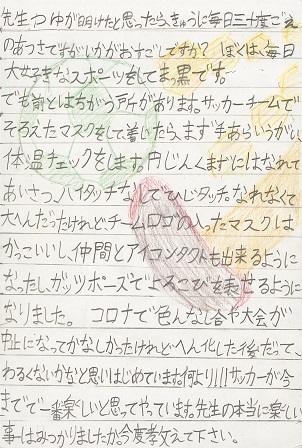 先生、つゆが明けたと思ったら、きゅうに毎日三十度ごえ
のあつさですがいかがおすごしですか？ ぼくは、毎日
大好きなスポーツをしてまっ黒です。
でも前とはちがう所があります。サッカーチームで
そろえたマスクをして着いたら、まず手あらいうがい、
体温チェックをします。円じんくまずにはなれて
あいさつ、ハイタッチなしでひじタッチ。なれなくて
大へんだったけれど、チームロゴの入ったマスクは
かっこいいし、仲間とアイコンタクトも出来るように
なったし、ガッツポーズでよろこびを表せるように
なりました。 コロナで色んなし合や大会が
中止になってかなしかったけれど、へん化した後だって、
わるくないかなと思いはじめています。何より!!!サッカーが今
までで一番楽しいと思ってやっています。先生の本当に楽しい
事はみつかりましたか。今度教えて下さい。